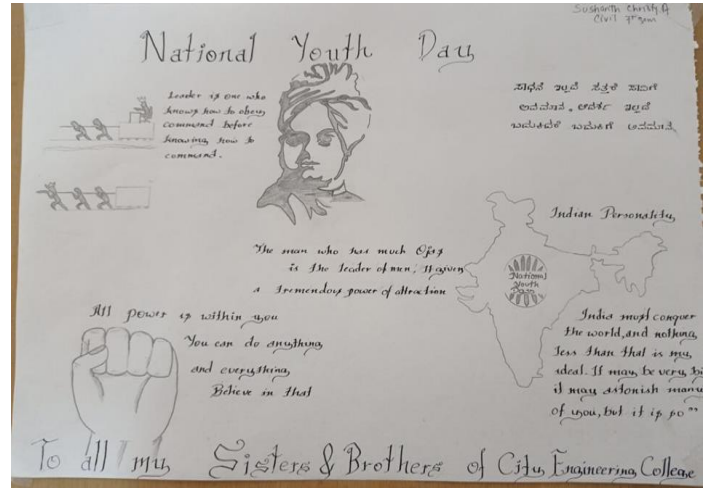 Sushanth Christy A
Civil 7th sem
National Youth Day
Leader is one who
knows how to obey
command before
knowing how to
command.
ಸಾಧನೆ ಇಲ್ಲದೆ ಸತ್ತರೆ ಸಾವಿಗೆ
ಅವಮಾನ, ಆದರ್ಶ ಇಲ್ಲದೆ
ಬದುಕಿದರೆ ಬದುಕಿಗೆ ಅವಮಾನ
Indian Personality
The man who has much Ojas
is the leader of men, It gives
a tremendous power of attraction
National
Youth
Day
All power is within you
You can do anything
and everything,
Believe in that
India must conquer
the world, and nothing
less than that is my
ideal. It may be very
it may astonish many
of you, but it is so"
To all my Sisters & Brothers of City Engineering College